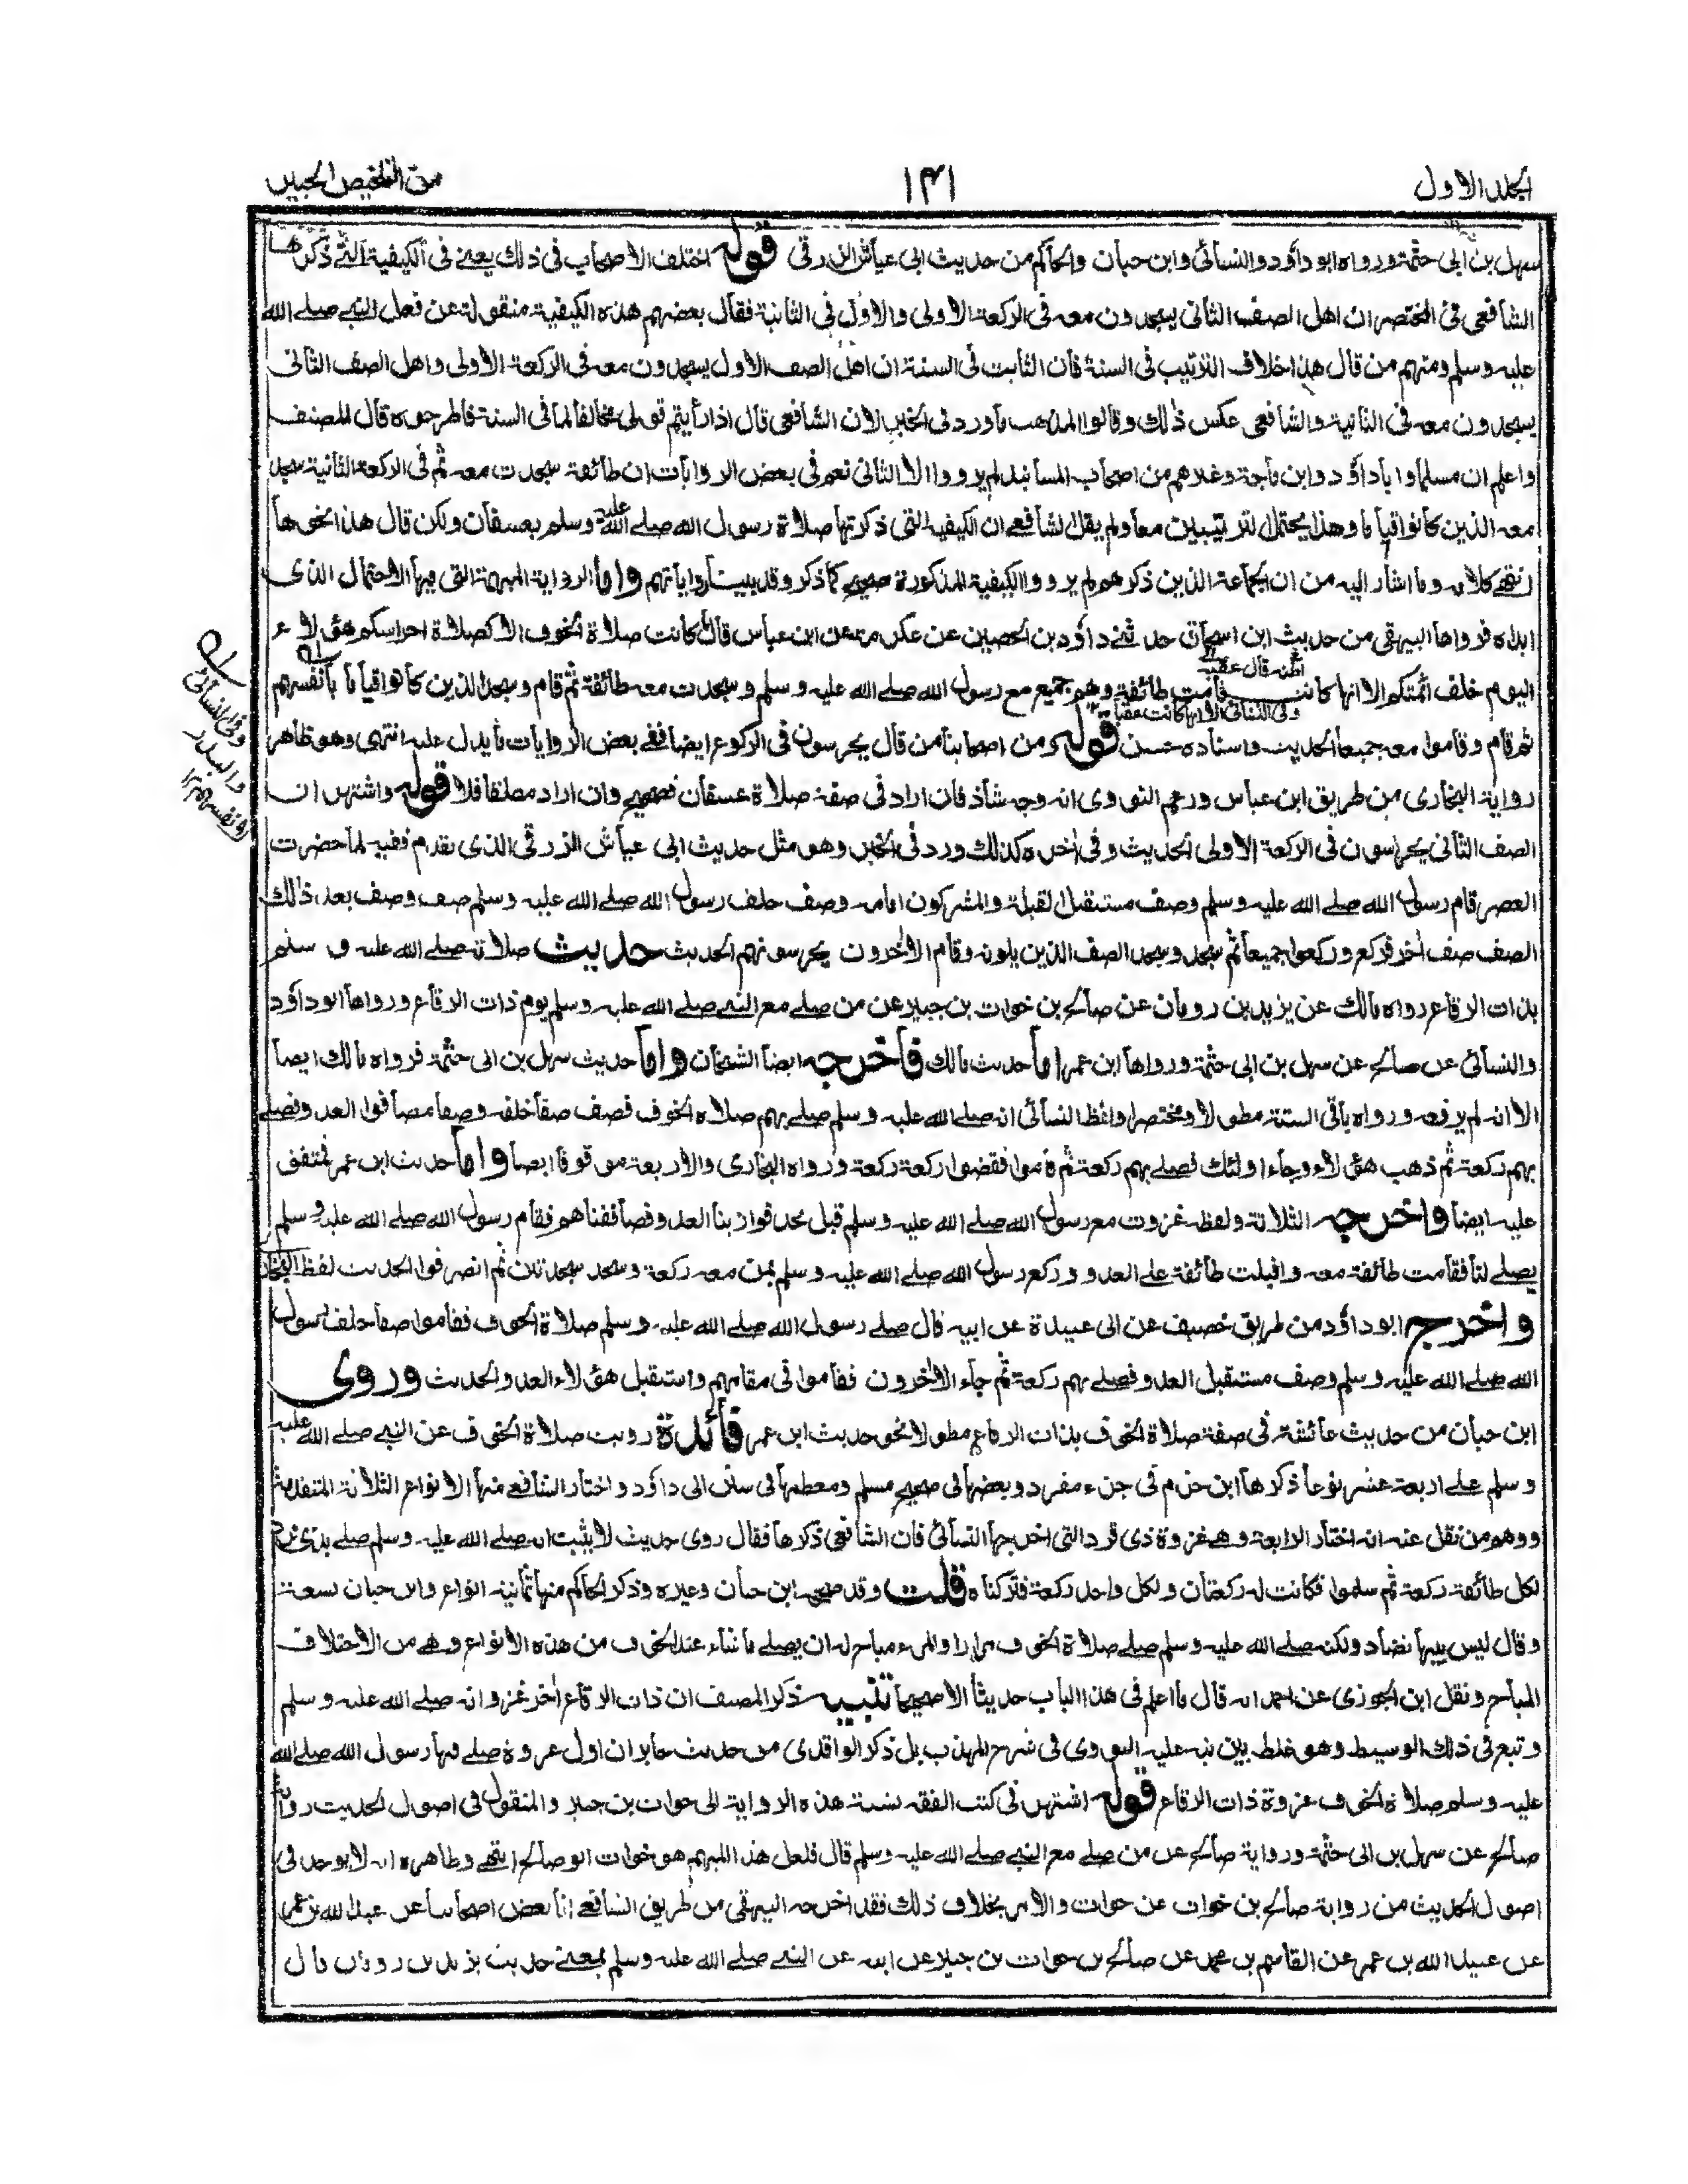 الجلد الاول
١٤١
من التلخيص الحبير
سهل بن ابى حثمة ورواه ابو داؤد والنسائى وابن حبان والحاكم من حديث ابى عياش الزرقى قوله اختلف الاصحاب فى ذلك يعنى فى الكيفية التى ذكرها
الشافعى فى المختصر ان اهل الصف الثانى يسجدون معه فى الركعة الاولى والاول فى الثانية فقال بعضهم هذه الكيفية منقولة عن فعل النبى صلى الله
عليه وسلم ومنهم من قال هذا خلاف الترتيب فى السنة فان الثابت فى السنة ان اهل الصف الاول يسجدون معه فى الركعة الاولى واهل الصف الثانى
يسجدون معه فى الثانية والشافعى عكس ذلك وقالوا المذهب ما ورد فى الخبر لان الشافعى قال اذا رأيتم قولى مخالفا لما فى السنة فاطرحوه قال المصنف
واعلم ان مسلما وابا داؤد وابن ماجة وغيرهم من اصحاب المسانيد لم يرووا الا الثانى نعم فى بعض الروايات ان طائفة سجدت معه ثم فى الركعة الثانية سجد
معه الذين كانوا قياما وهذا يحتمل الترتيبين معا ولم يقل الشافعى ان الكيفية التى ذكرتها صلاة رسول الله صلى الله عليه وسلم بعسفان ولكن قال هذا نحوها
انتهى كلامه وما اشار اليه من ان الجماعة الذين ذكرهم لم يرووا الكيفية المذكورة صحيح كما ذكر وقد بينت رواياتهم واما الرواية المبهمة التى فيها الاحتمال الذى
ابداه فرواها البيهقى من حديث ابن اسحاق حدثنى داؤد بن الحصين عن عكرمة عن ابن عباس قال ما كانت صلاة الخوف الا كصلاة احراسكم هؤلاء
اليوم خلف ائمتكم الا انها كانت قامت طائفة وهو جميع مع رسول الله صلى الله عليه وسلم وسجدت معه طائفة ثم قام وسجد الذين كانوا قياما بانفسهم
ثم قام وقاموا معه جميعا الحديث واسناده حسن قوله ومن اصحابنا من قال يحرسون فى الركوع ايضا ففى بعض الروايات ما يدل عليه انتهى وهو ظاهر
رواية البخارى من طريق ابن عباس وزعم النووى انه وجه شاذ فان اراد فى صفة صلاة عسفان فصحيح وان اراد مطلقا فلا قوله واشتهر ان
الصف الثانى يحرسون فى الركعة الاولى الحديث وفى اخره كذلك ورد فى الخبر وهو مثل حديث ابى عياش الزرقى الذى تقدم ففيه لما حضرت
العصر قام رسول الله صلى الله عليه وسلم وصف مستقبل القبلة والمشركون امامه وصف خلف رسول الله صلى الله عليه وسلم صف وصف بعد ذلك
الصف صف اخر فركع وركعوا جميعا ثم سجد وسجد الصف الذين يلونه وقام الاخرون يحرسونهم الحديث حديث صلاته صلى الله عليه وسلم
بذات الرقاع رواه مالك عن يزيد بن رومان عن صالح بن خوات بن جبير عن من صلى مع النبى صلى الله عليه وسلم يوم ذات الرقاع ورواها ابو داؤد
والنسائى عن صالح عن سهل بن ابى حثمة ورواها ابن عمر اما حديث مالك فاخرجه ايضا الشيخان واما حديث سهل بن ابى حثمة فرواه مالك ايضا
الا انه لم يرفعه ورواه باقى الستة مطولا ومختصرا ولفظ النسائى انه صلى الله عليه وسلم صلى بهم صلاة الخوف فصف صفا خلفه وصفا مصافوا العدو فصلى
بهم ركعة ثم ذهب هؤلاء وجاء اولئك فصلى بهم ركعة ثم قاموا فقضوا ركعة ركعة ورواه البخارى والاربعة موقوفا ايضا واما حديث ابن عمر فمتفق
عليه ايضا واخرجه الثلاثة ولفظه غزوت مع رسول الله صلى الله عليه وسلم قبل نجد فوازينا العدو فصاففناهم فقام رسول الله صلى الله عليه وسلم
يصلى لنا فقامت طائفة معه واقبلت طائفة على العدو وركع رسول الله صلى الله عليه وسلم بمن معه ركعة وسجد سجدتين ثم انصرفوا الحديث لفظ البخارى
واخرج ابو داؤد من طريق خصيف عن ابى عبيدة عن ابيه قال صلى رسول الله صلى الله عليه وسلم صلاة الخوف فقاموا صفا خلف رسول
الله صلى الله عليه وسلم وصف مستقبل العدو فصلى بهم ركعة ثم جاء الاخرون فقاموا فى مقامهم واستقبل هؤلاء العدو الحديث وروى
ابن حبان من حديث عائشة فى صفة صلاة الخوف بذات الرقاع مطولا نحو حديث ابن عمر فائدة رويت صلاة الخوف عن النبى صلى الله عليه
وسلم على اربعة عشر نوعا ذكرها ابن حزم فى جزء مفرد وبعضها فى صحيح مسلم ومعظمها فى سنن ابى داؤد واختار الشافعى منها الانواع الثلاثة المتقدمة
ووهم من نقل عنه انه اختار الرابعة وهى غزوة ذى قرد التى اخرجها النسائى فان الشافعى ذكرها فقال روى حديث لا يثبت انه صلى الله عليه وسلم صلى بذى قرد
لكل طائفة ركعة ثم سلموا فكانت له ركعتان ولكل واحد ركعة فتركناه قلت وقد صححه ابن حبان وغيره وذكر الحاكم منها ثمانية انواع وابن حبان تسعة
وقال ليس بينها تضاد ولكنه صلى الله عليه وسلم صلى صلاة الخوف مرارا والمرء مباح له ان يصلى ما شاء عند الخوف من هذه الانواع وهى من الاختلاف
المباح ونقل ابن الجوزى عن احمد انه قال ما اعلم فى هذا الباب حديثا الا صحيحا تنبيه ذكر المصنف ان ذات الرقاع اخر غزواته صلى الله عليه وسلم
وتبع فى ذلك الوسيط وهو غلط بين نبه عليه النووى فى شرح المهذب بل ذكر الواقدى من حديث جابر ان اول غزوة صلى فيها رسول الله صلى الله
عليه وسلم صلاة الخوف غزوة ذات الرقاع قوله اشتهر فى كتب الفقه نسبة هذه الرواية الى خوات بن جبير والمنقول فى اصول الحديث رواية
صالح عن سهل بن ابى حثمة ورواية صالح عن من صلى مع النبى صلى الله عليه وسلم قال فلعل هذا المبهم هو خوات ابو صالح انتهى وظاهره انه لا يوجد فى
اصول الحديث من رواية صالح بن خوات عن خوات والامر بخلاف ذلك فقد اخرجه البيهقى من طريق الشافعى انا بعض اصحابنا عن عبد الله بن عمر
عن عبيد الله بن عمر عن القاسم بن محمد عن صالح بن خوات بن جبير عن ابيه عن النبى صلى الله عليه وسلم بمعنى حديث يزيد بن رومان قال